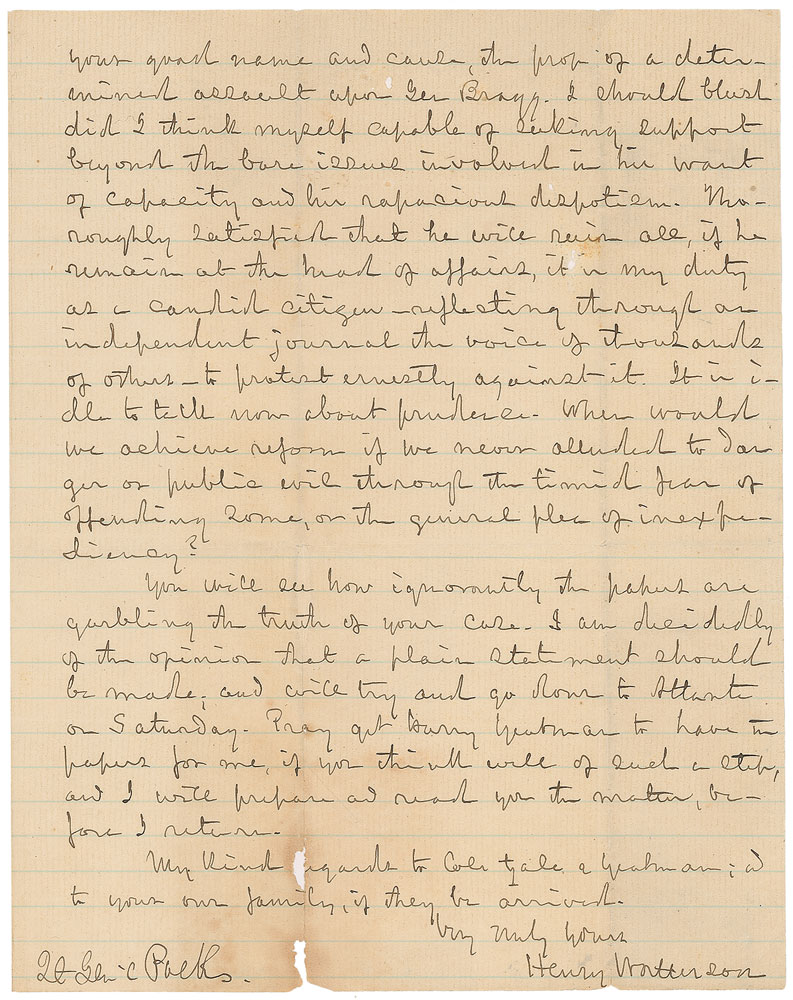 your good name and cause, the prop of a deter-
mined assault upon Gen Bragg. I should blush
did I think myself capable of seeking support
beyond the bare issues involved in his want
of capacity and his rapacious despotism. Tho-
roughly satisfied that he will ruin all, if he
remain at the head of affairs, it is my duty
as a candid citizen – reflecting through an
independent journal the voice of thousands
of others – to protest ernestly against it. It is i-
dle to talk now about prudence. When would
we achieve reform if we never alluded to dan-
ger or public evil through the timid fear of
offending some, or the general plea of inexpe-
diency?
You will see how ignorantly the papers are
garbling the truth of your case. I am decidedly
of the opinion that a plain statement should
be made; and will try and go down to Atlanta
on Saturday. Pray get Harry Yeatman to have the
papers for me, if you think well of such a step,
and I will prepare ad read you the matter, be-
fore I return.
My kind regards to Cols & Yeatman; ad
to your own family, if they be arrived.
Very truly yours
Henry Watterson
Lt Gen'l Polk.